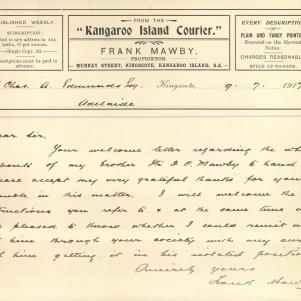 PUBLISHED WEEKLY.
SUBSCRIPTION:
FROM THE
"Kangaroo Island Courier."
FRANK MAWBY,
PROPRIETOR.
MURRAY STREET, KINGSCOTE, KANGAROO ISLAND, S.A.
EVERY DESCRIPTION
OF
PLAIN AND FANCY PRINTING
Executed on the Shortest
Notice.
CHARGES REASONABLE
STYLE UP-TO-DATE.
Chas. A. Edmunds Esq. Kingscote, 9. 7. 191
Adelaide
ear Sir,
Your welcome letter regarding the wh
of my brother I. O. Mawby to hand
ease accept my very grateful thanks for your
in this matter. I will welcome the
you refer to & at the same time
pleased to know whether I could remit
him through your society with any
him getting it in his isolated position
Sincerely yours
Frank Maw